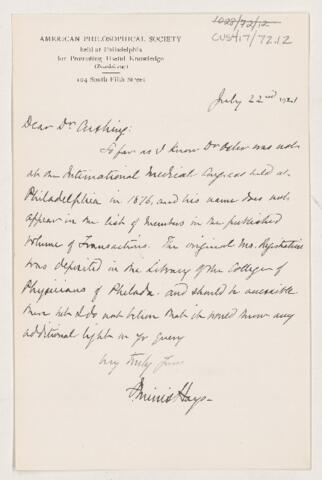 1028/72/12
CUS417/72.12
AMERICAN PHILOSOPHICAL SOCIETY
held at Philadelphia
for Promoting Useful Knowledge
104 South Fifth Street
July 22nd 1921
Dear Dr. Cushing:
So far as I know Dr Osler was not
at our International Medical Congress held at
Philadelphia in 1876, and his name does not
appear in the list of members in the published
volume of Transactions. The original ms. Registration
was deposited in the Library of the College of
Physicians of Philada. and should be accessible
there but I do not believe that it would throw any
additional light on yr query
Very truly yours
Minis Hays